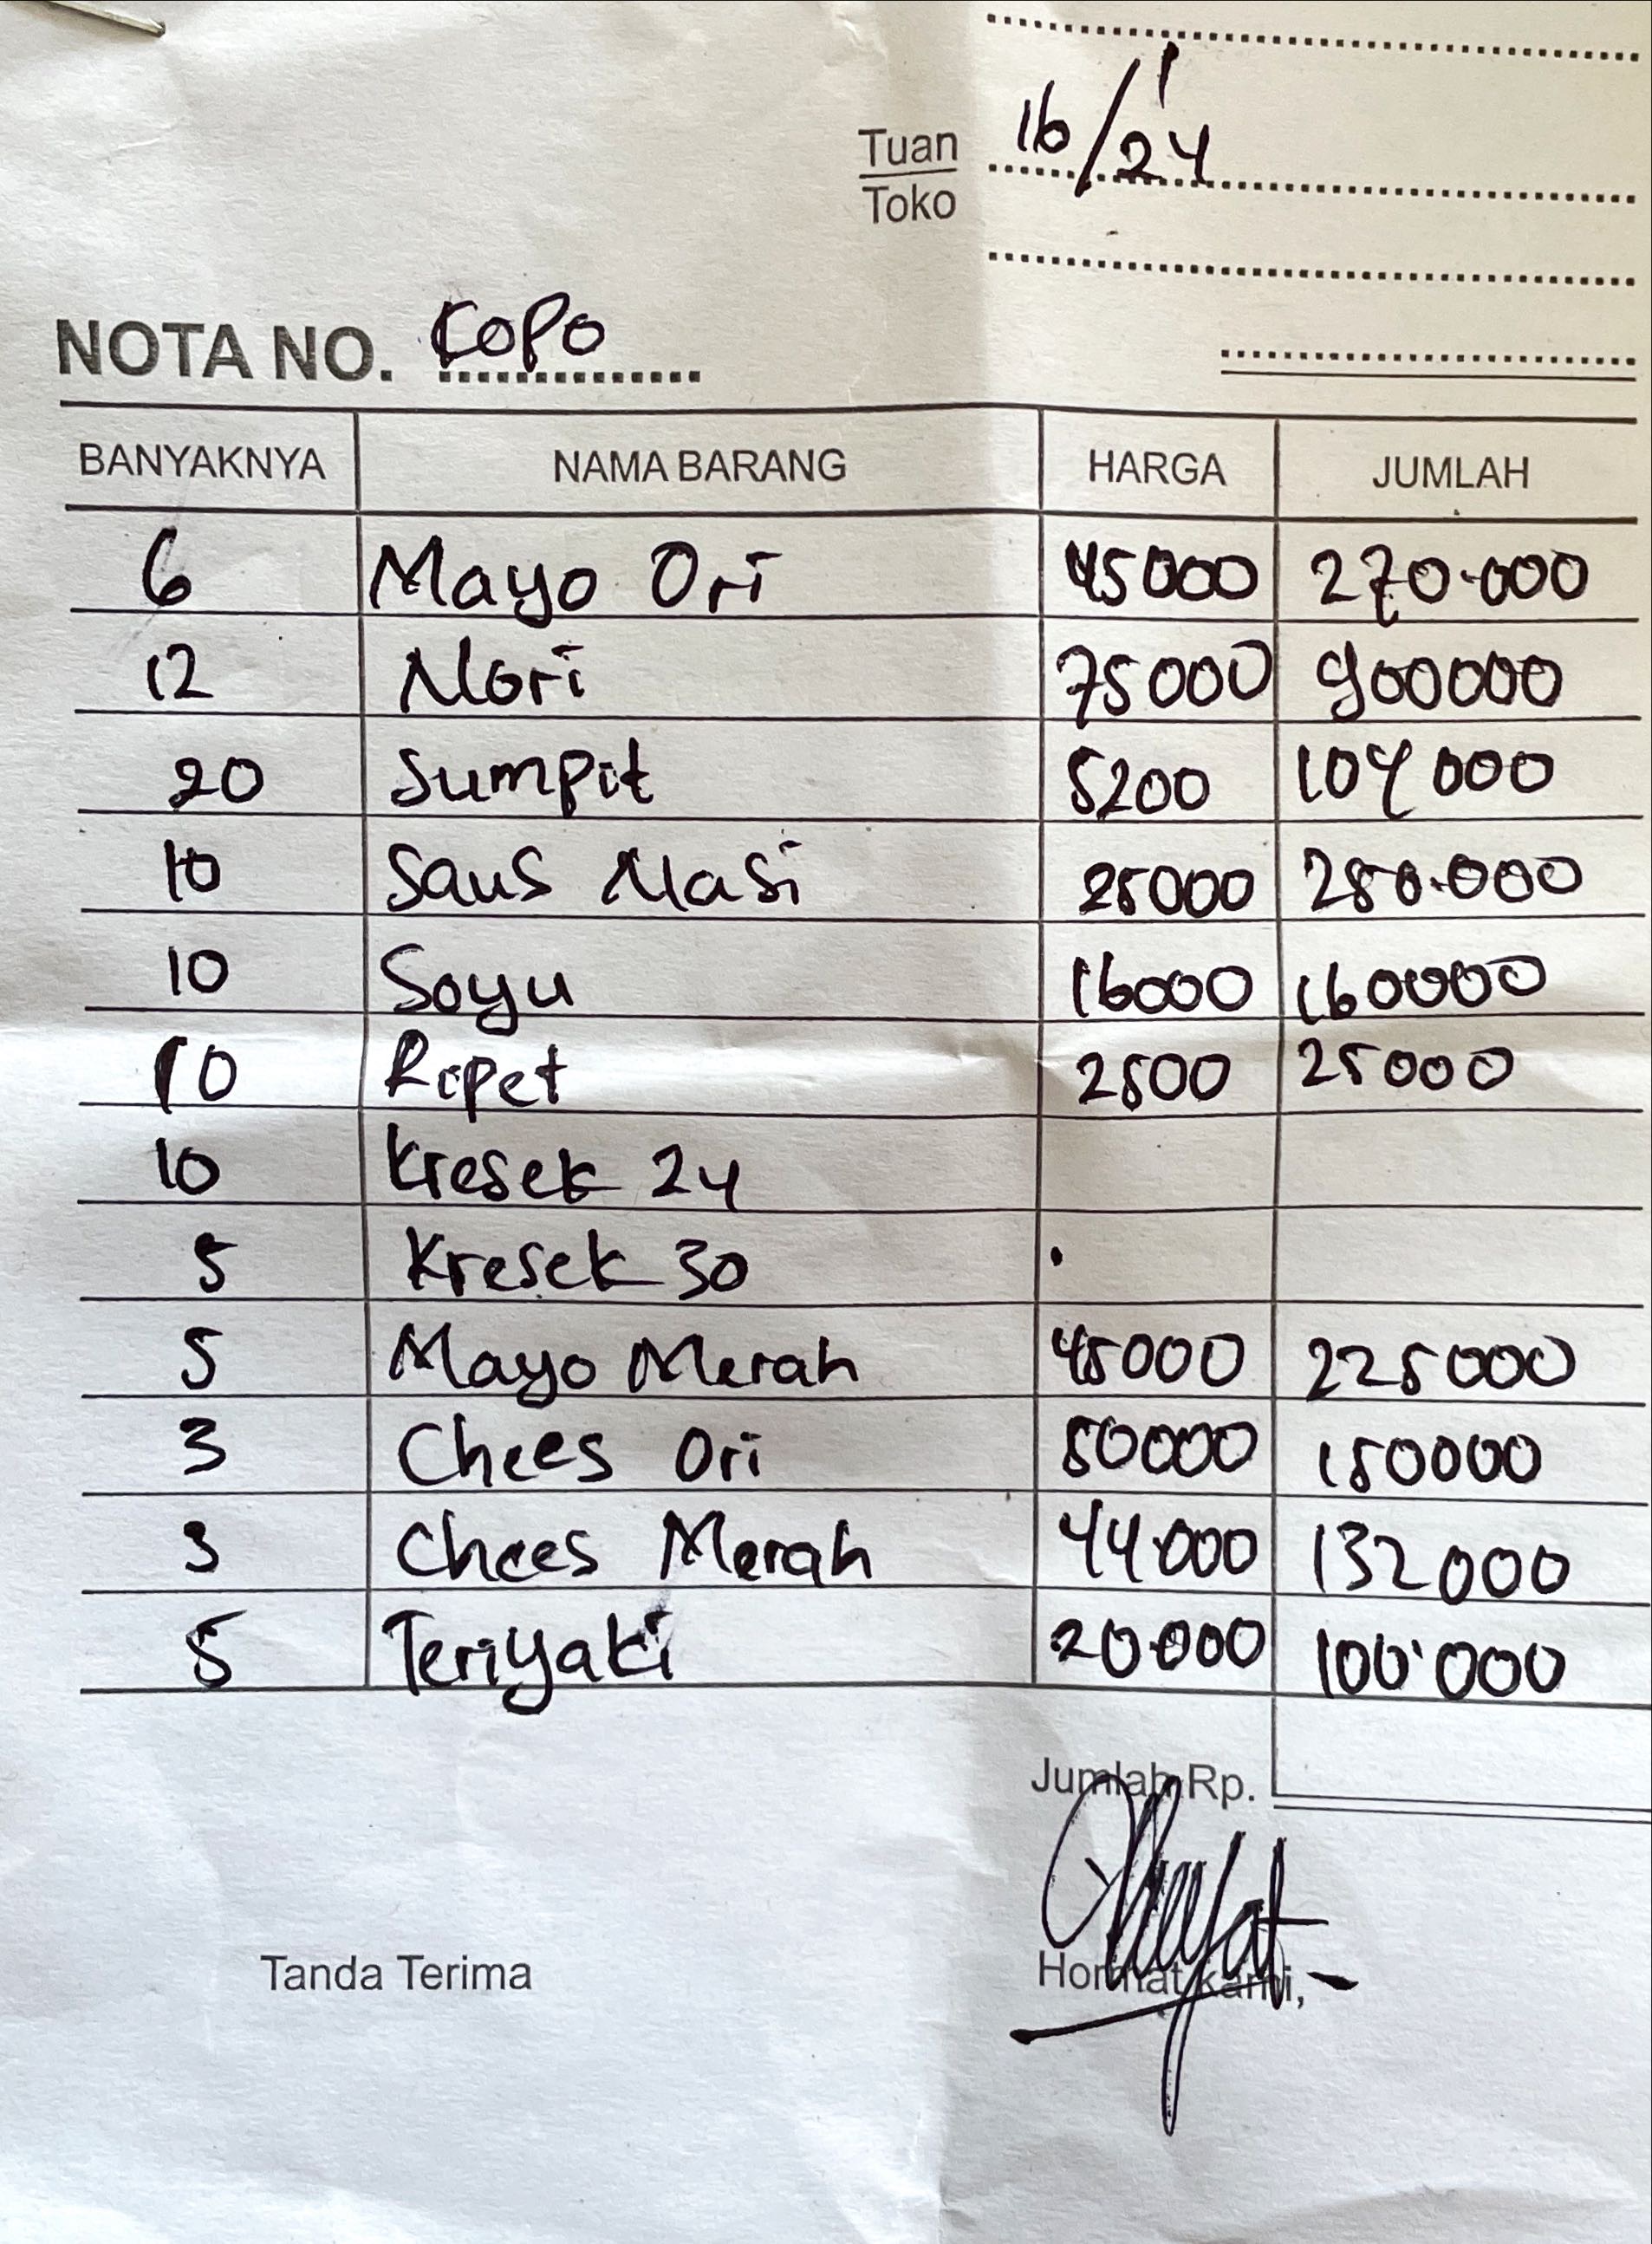 16/1/24
Tuan
Toko
NOTA NO. KOPO
BANYAKNYA NAMA BARANG HARGA JUMLAH
6 Mayo Ori 45000 270.000
12 Nori 75000 900000
20 Sumpit 5200 104000
10 Saus Nasi 25000 250.000
10 Soyu 16000 160000
10 Ripet 2500 25000
10 Kresek 24
5 Kresek 30
5 Mayo Merah 45000 225000
3 Chees Ori 50000 150000
3 Chees Merah 44.000 132000
5 Teriyaki 20.000 100.000
Jumlah Rp.
Tanda Terima Hormat kami,